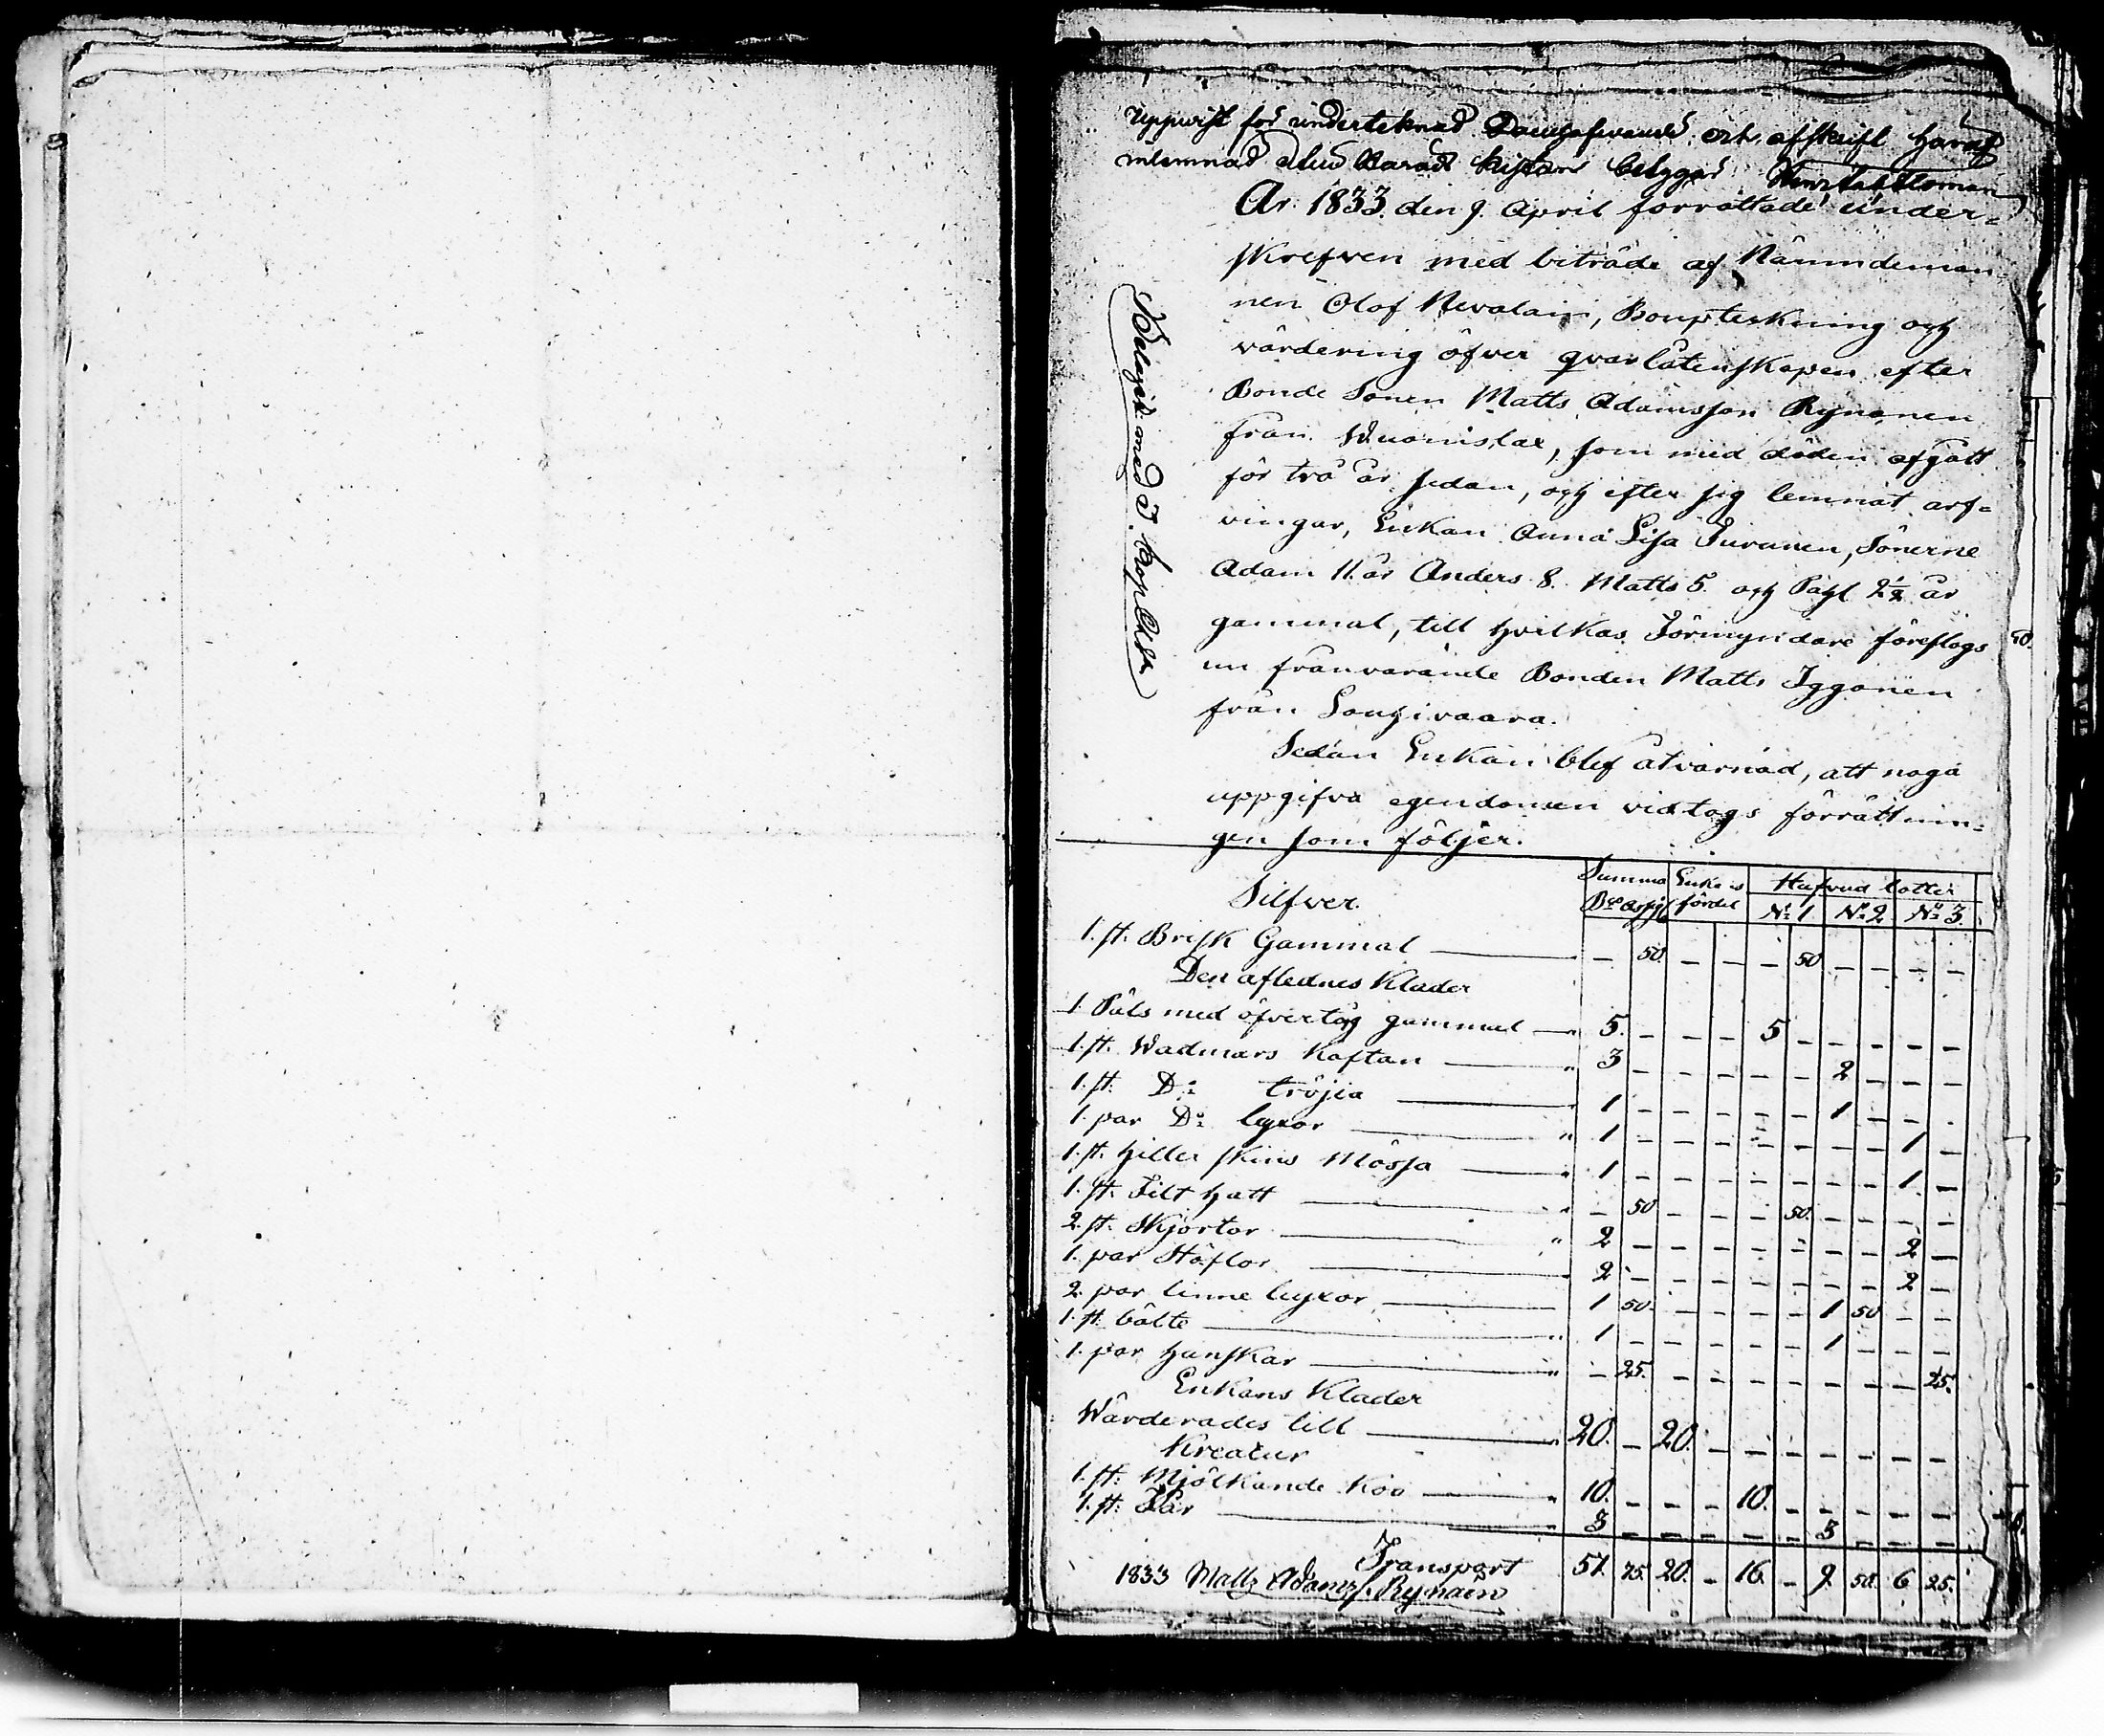 Uppvist för underteknad och afskrift häraf
inlemnad uti Härads kistan betygar
År 1833. den 9. April förrättade under=
skrefven med biträde af Nämndeman
nen Olof Nevalain, Boupteckning och
värdering öfver qvarlåtenskapen efter
Bonde Sonen Matts Adamsson Rynänen
från Wuonislax, som med döden afgått
för två år sedan, och efter sig lemnat arf=
vingar, Enkan Anna Lisa Turunen, Sönerne
Adam 11. år Anders 8. Matts 5. och Påhl 2½ år
gammal, till hvilkas Förmyndare föreslogs
nu frånvarande Bonden Matts Iggonen
från Louhivaara.
Sedan Enkan blef åtvarnad, att noga
uppgifva egendomen vidtogs förrättnin=
gen som följer.
Belagdt med 3. kop Ch. S.
Silfver. Summa Enkans Hufvud lotter
B:co Assign fördel N:o 1 N:o 2 N:o 3.
1. st. Brisk Gammal — 50. — — — 50 — — — —
Den aflednes Kläder
1. Päls med öfvertåg gammal — " 5. — — — 5 — — — — —
1. st. Wadmars Kaftan — " 3 — — — — — 2 — — —
1. st. D:o tröjia — " 1 — — — — — 1 — — —
1. par D:o byxor — " 1 — — — — — — — 1 —
1. st. hiller skins Mössa — " 1 — — — — — — — 1. —
1. st. Filt hatt — " — 50 — — — 50. — — — —
2. st. Skjortor — " 2 — — — — — — — 2 —
1. par Stöflor — " 2 — — — — — — — 2 —
2. par linne byxor — 1 50. — — — — 1 50 — —
1. st. bälte — " 1 — — — — — 1 — — —
1. par hanskar — " — 25. — — — — — — — 25.
Enkans Kläder
Wärderades till — " 20. — 20. — — — — — — —
Kreatur
1. st: Mjölkande Koo — " 10. — — — 10. — — — — —
1. st: Får — " 3 — — — — — 3 — — —
Transport 51. 75. 20. — 16. — 9. 50. 6 25.
1833 Matts Adamss. Rynäin